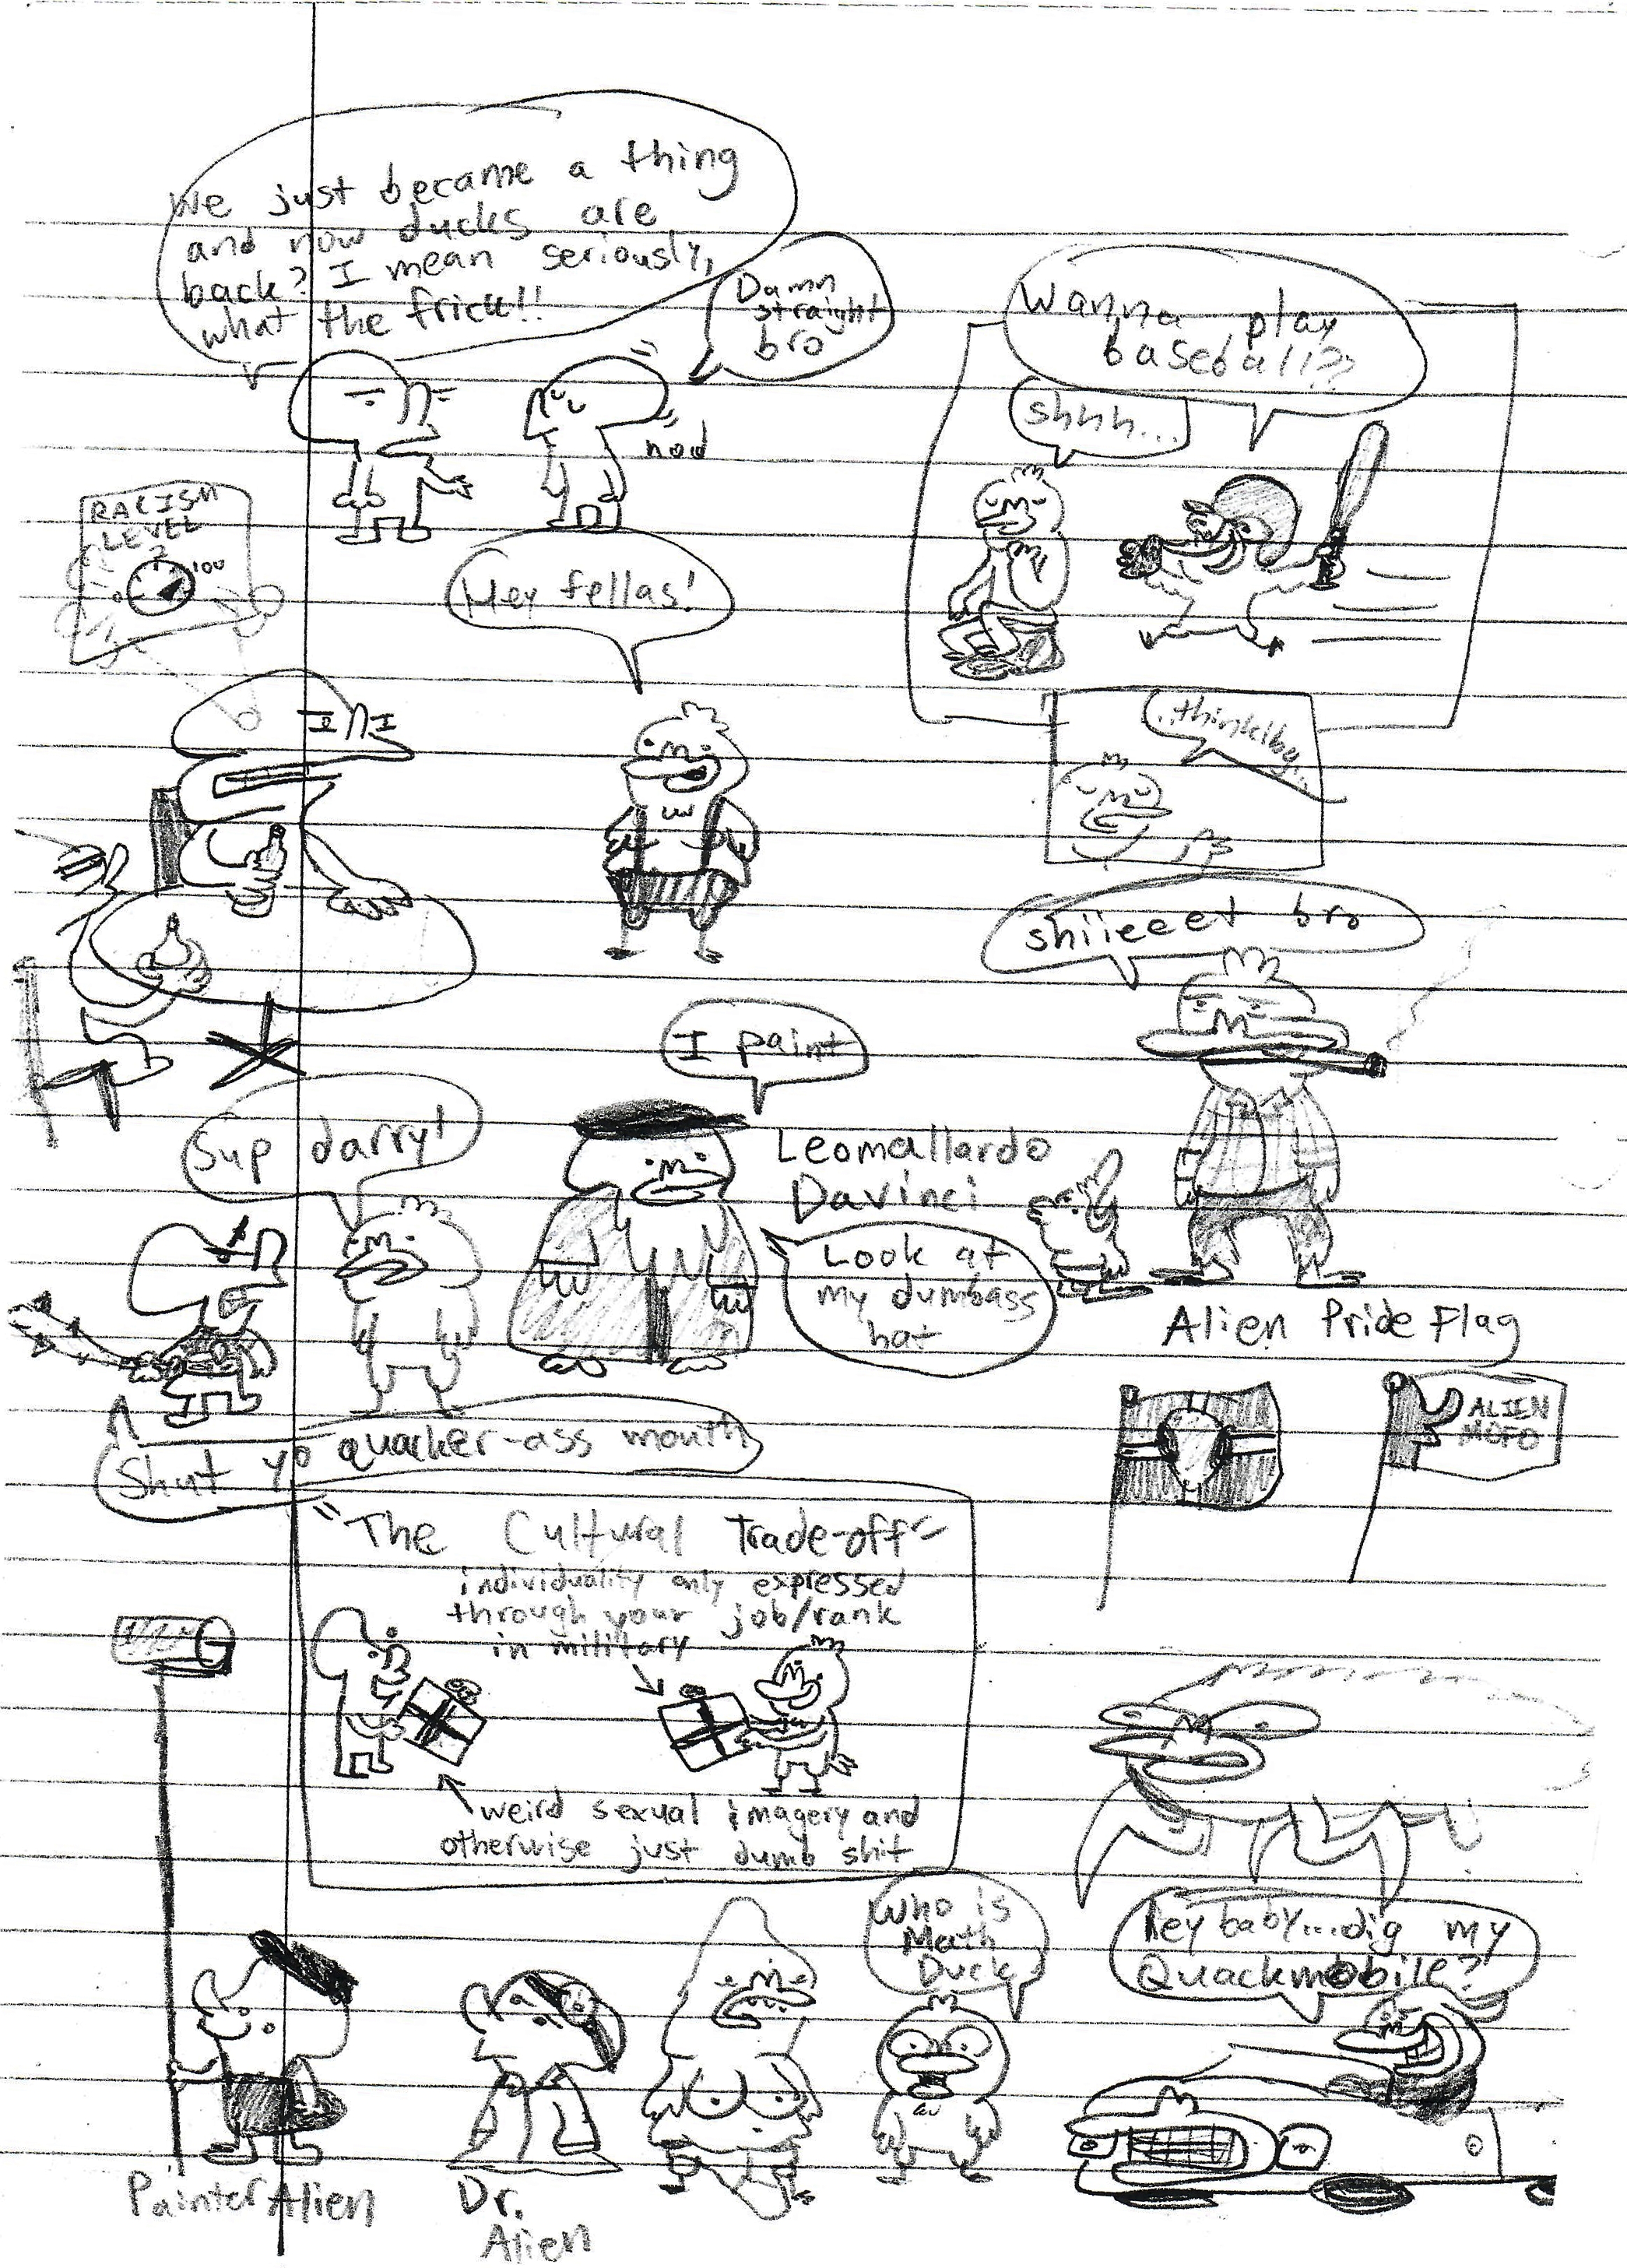 We just became a thing
and now ducks are
back? I mean seriously,
what the frick!!
Damn
straight
bro
nod
Wanna play
baseball??
shhh...
RACISM
LEVEL
?
0
100
Hey fellas!
shiieeet bro
I paint
Leomallardo
Davinci
Look at
my dumbass
hat
Sup darry!
Shut yo quacker-ass mouth
Alien Pride Flag
ALIEN
MOFO
"The Cultural Trade-off"
individuality only expressed
through your job/rank
in military
weird sexual imagery and
otherwise just dumb shit
Who is
Math
Duck
Hey baby...dig my
Quackmobile?
Painter Alien
Dr.
Alien